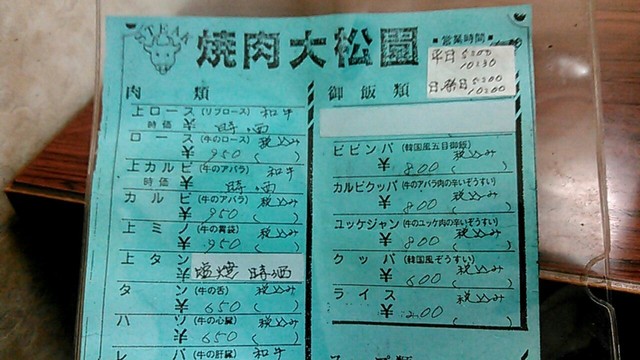 焼肉大松園
営業時間
平日 5:00
10:30
日・祭日 5:00
10:00
肉類
上ロース (リブロース) 和牛
時価 ¥ 時価
ロース (牛のロース) 税込み
¥ 950 ( )
上カルビ (牛のアバラ) 和牛
時価 ¥ 時価
カルビ (牛のアバラ) 税込み
¥ 950 ( )
上ミノ (牛の胃袋) 税込み
¥ 950 ( )
上タン
¥ 塩焼 時価
タン (牛の舌) 税込み
¥ 650 ( )
ハツ (牛の心臓) 税込み
¥ 650 ( )
レバ (牛の肝臓) 和牛
御飯類
ビビンバ (韓国風五目御飯) 税込み
¥ 800 ( )
カルビクッパ (牛のアバラ肉の辛いぞうすい) 税込み
¥ 800 ( )
ユッケジャン (牛のユッケ肉の辛いぞうすい) 税込み
¥ 800 ( )
クッパ (韓国風ぞうすい) 税込み
¥ 600 ( )
ライス 税込み
¥ 200 ( )
スープ類